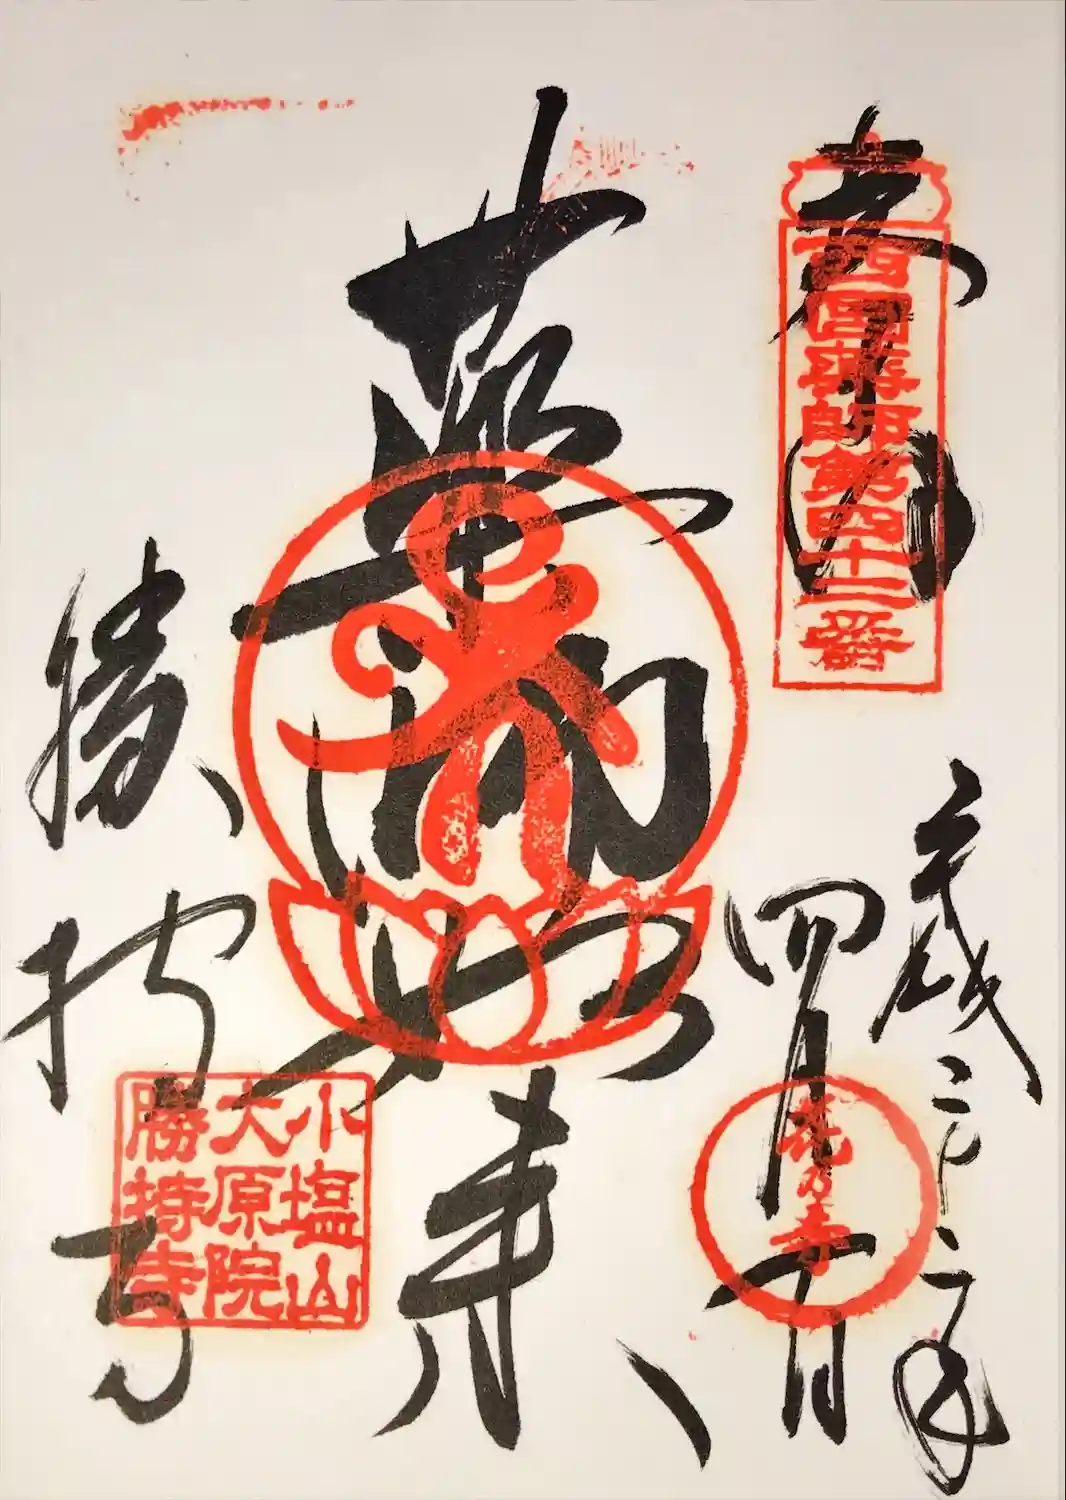 奉拝
西國薬師第四十二番
平成二十二年
四月十日
花の寺
薬師如来
勝持寺
小塩山
大原院
勝持寺